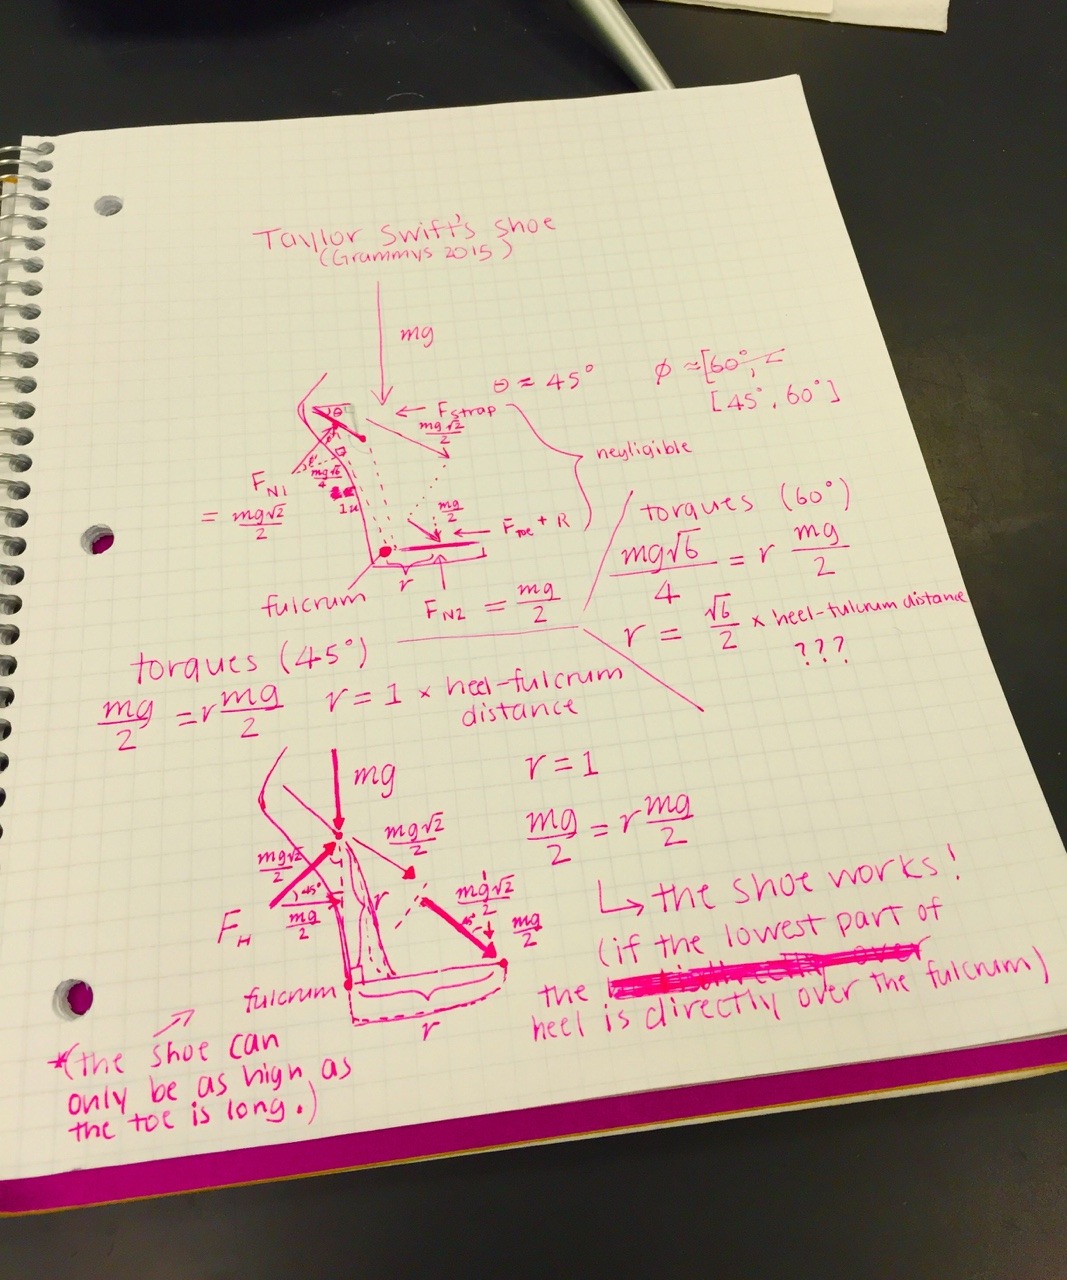 Taylor Swift's Shoe
(Grammys 2015)
mg
θ ≈ 45°
ϕ ≈ [60°,
[45°, 60°]
θ
← Fstrap
mg√2/2
negligible
F_N1
= mg√2/2
mg√6/4
mg/2
← F_toe + R
r
fulcrum
F_N2 = mg/2
torques (60°)
mg√6/4 = r mg/2
r = √6/2 × heel-fulcrum distance
???
torques (45°)
mg/2 = r mg/2
r = 1 × heel-fulcrum
distance
mg
r = 1
mg√2/2
mg/2 = r mg/2
mg√2/2
45°
mg/2
F_H
r
mg√2/2
45°
mg/2
↳ the shoe works!
(if the lowest part of
the
heel is directly over the fulcrum)
fulcrum
r
*(the shoe can
only be as high as
the toe is long.)